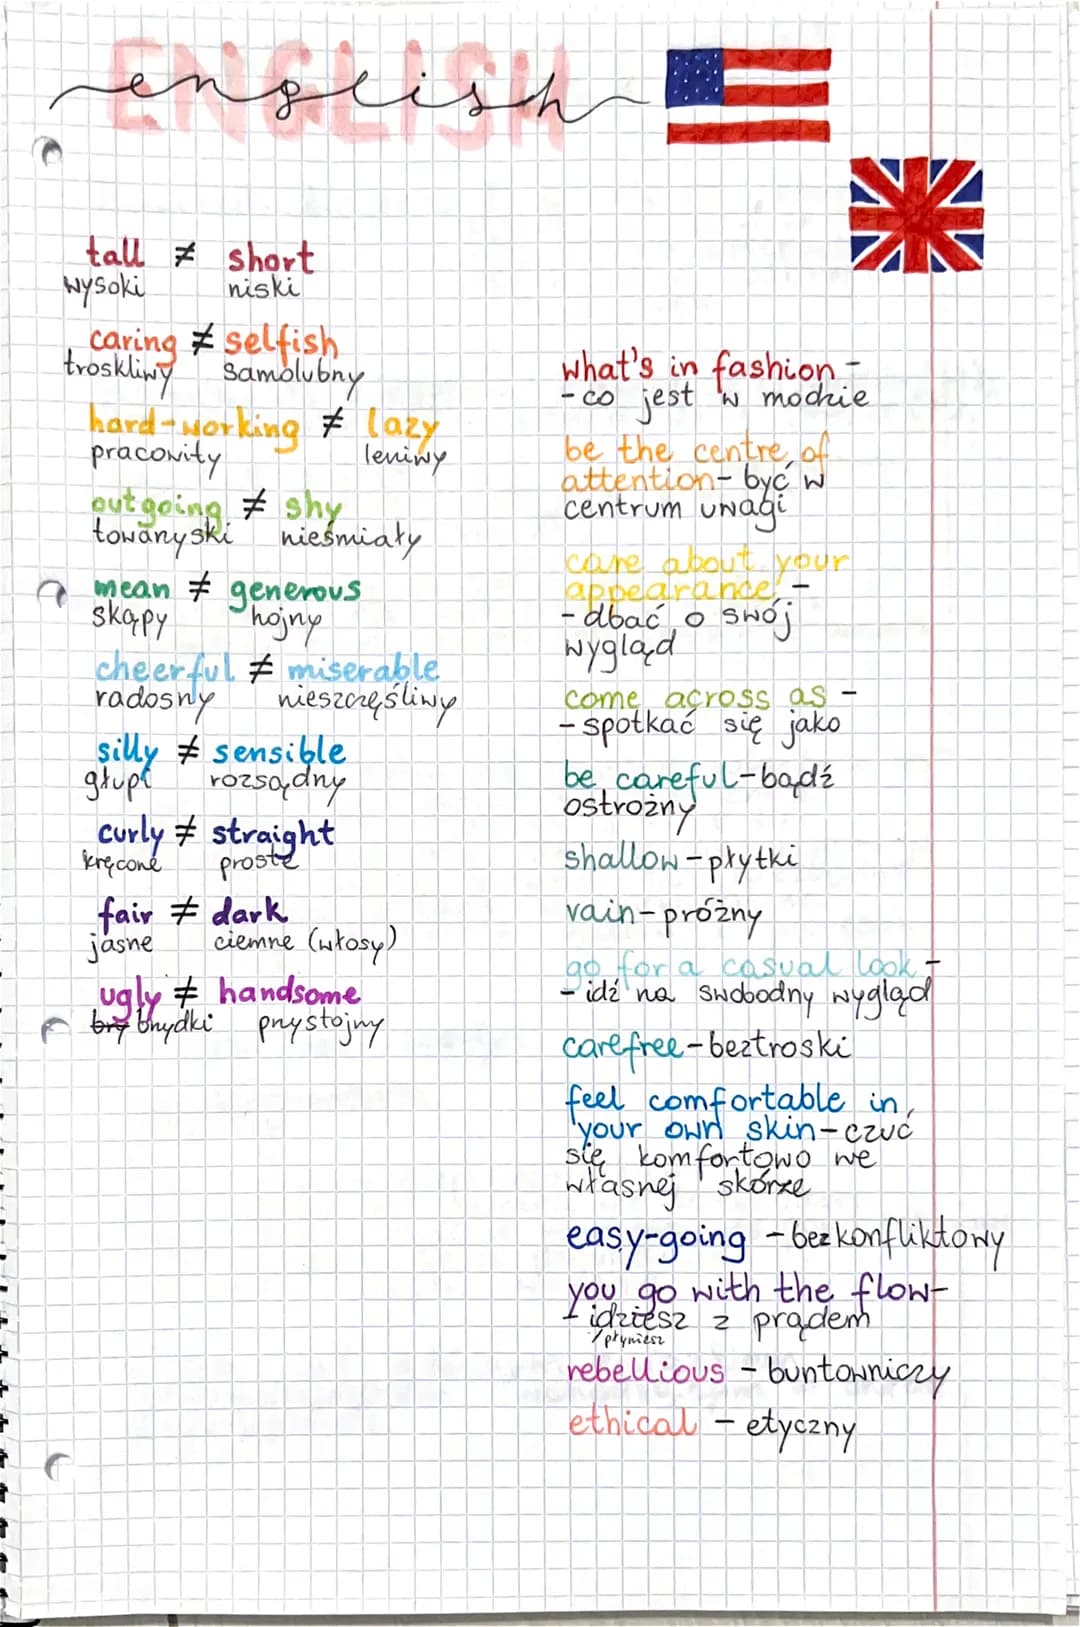 ENGLISH
english
tall ≠ short
wysoki niski
caring ≠ selfish
troskliwy samolubny
hard-working ≠ lazy
pracowity leniwy
outgoing ≠ shy
towarzyski nieśmiały
mean ≠ generous
skąpy hojny
cheerful ≠ miserable
radosny nieszczęśliwy
silly ≠ sensible
głupi rozsądny
curly ≠ straight
kręcone proste
fair ≠ dark
jasne ciemne (włosy)
ugly ≠ handsome
bry brzydki przystojny
what's in fashion -
- co jest w modzie
be the centre of
attention - być w
centrum uwagi
care about your
appearance -
- dbać o swój
wygląd
come across as -
- spotkać się jako
be careful - bądź
ostrożny
shallow - płytki
vain - próżny
go for a casual look -
- idź na swobodny wygląd
carefree - beztroski
feel comfortable in
your own skin - czuć
się komfortowo we
własnej skórze
easy-going - bezkonfliktowy
you go with the flow -
- idziesz z prądem
/płyniesz
rebellious - buntowniczy
ethical - etyczny